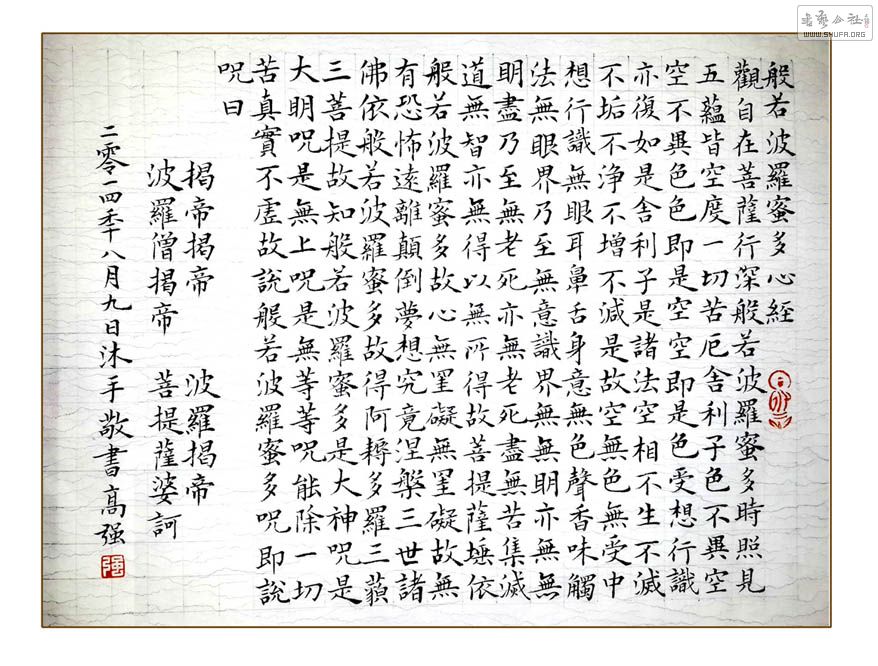 般若波羅蜜多心經
觀自在菩薩行深般若波羅蜜多時照見
五蘊皆空度一切苦厄舍利子色不異空
空不異色色即是空空即是色受想行識
亦復如是舍利子是諸法空相不生不滅
不垢不淨不增不減是故空無色無受中
想行識無眼耳鼻舌身意無色聲香味觸
法無眼界乃至無意識界無無明亦無無
明盡乃至無老死亦無老死盡無苦集滅
道無智亦無得以無所得故菩提薩埵依
般若波羅蜜多故心無罣礙無罣礙故無
有恐怖遠離顛倒夢想究竟涅槃三世諸
佛依般若波羅蜜多故得阿耨多羅三藐
三菩提故知般若波羅蜜多是大神呪是
大明呪是無上呪是無等等呪能除一切
苦真實不虛故說般若波羅蜜多呪即說
呪曰
揭帝揭帝 波羅揭帝
波羅僧揭帝 菩提薩婆訶
二零一四秊八月九日沐手敬書高强
强
WWW.SHUFA.ORG